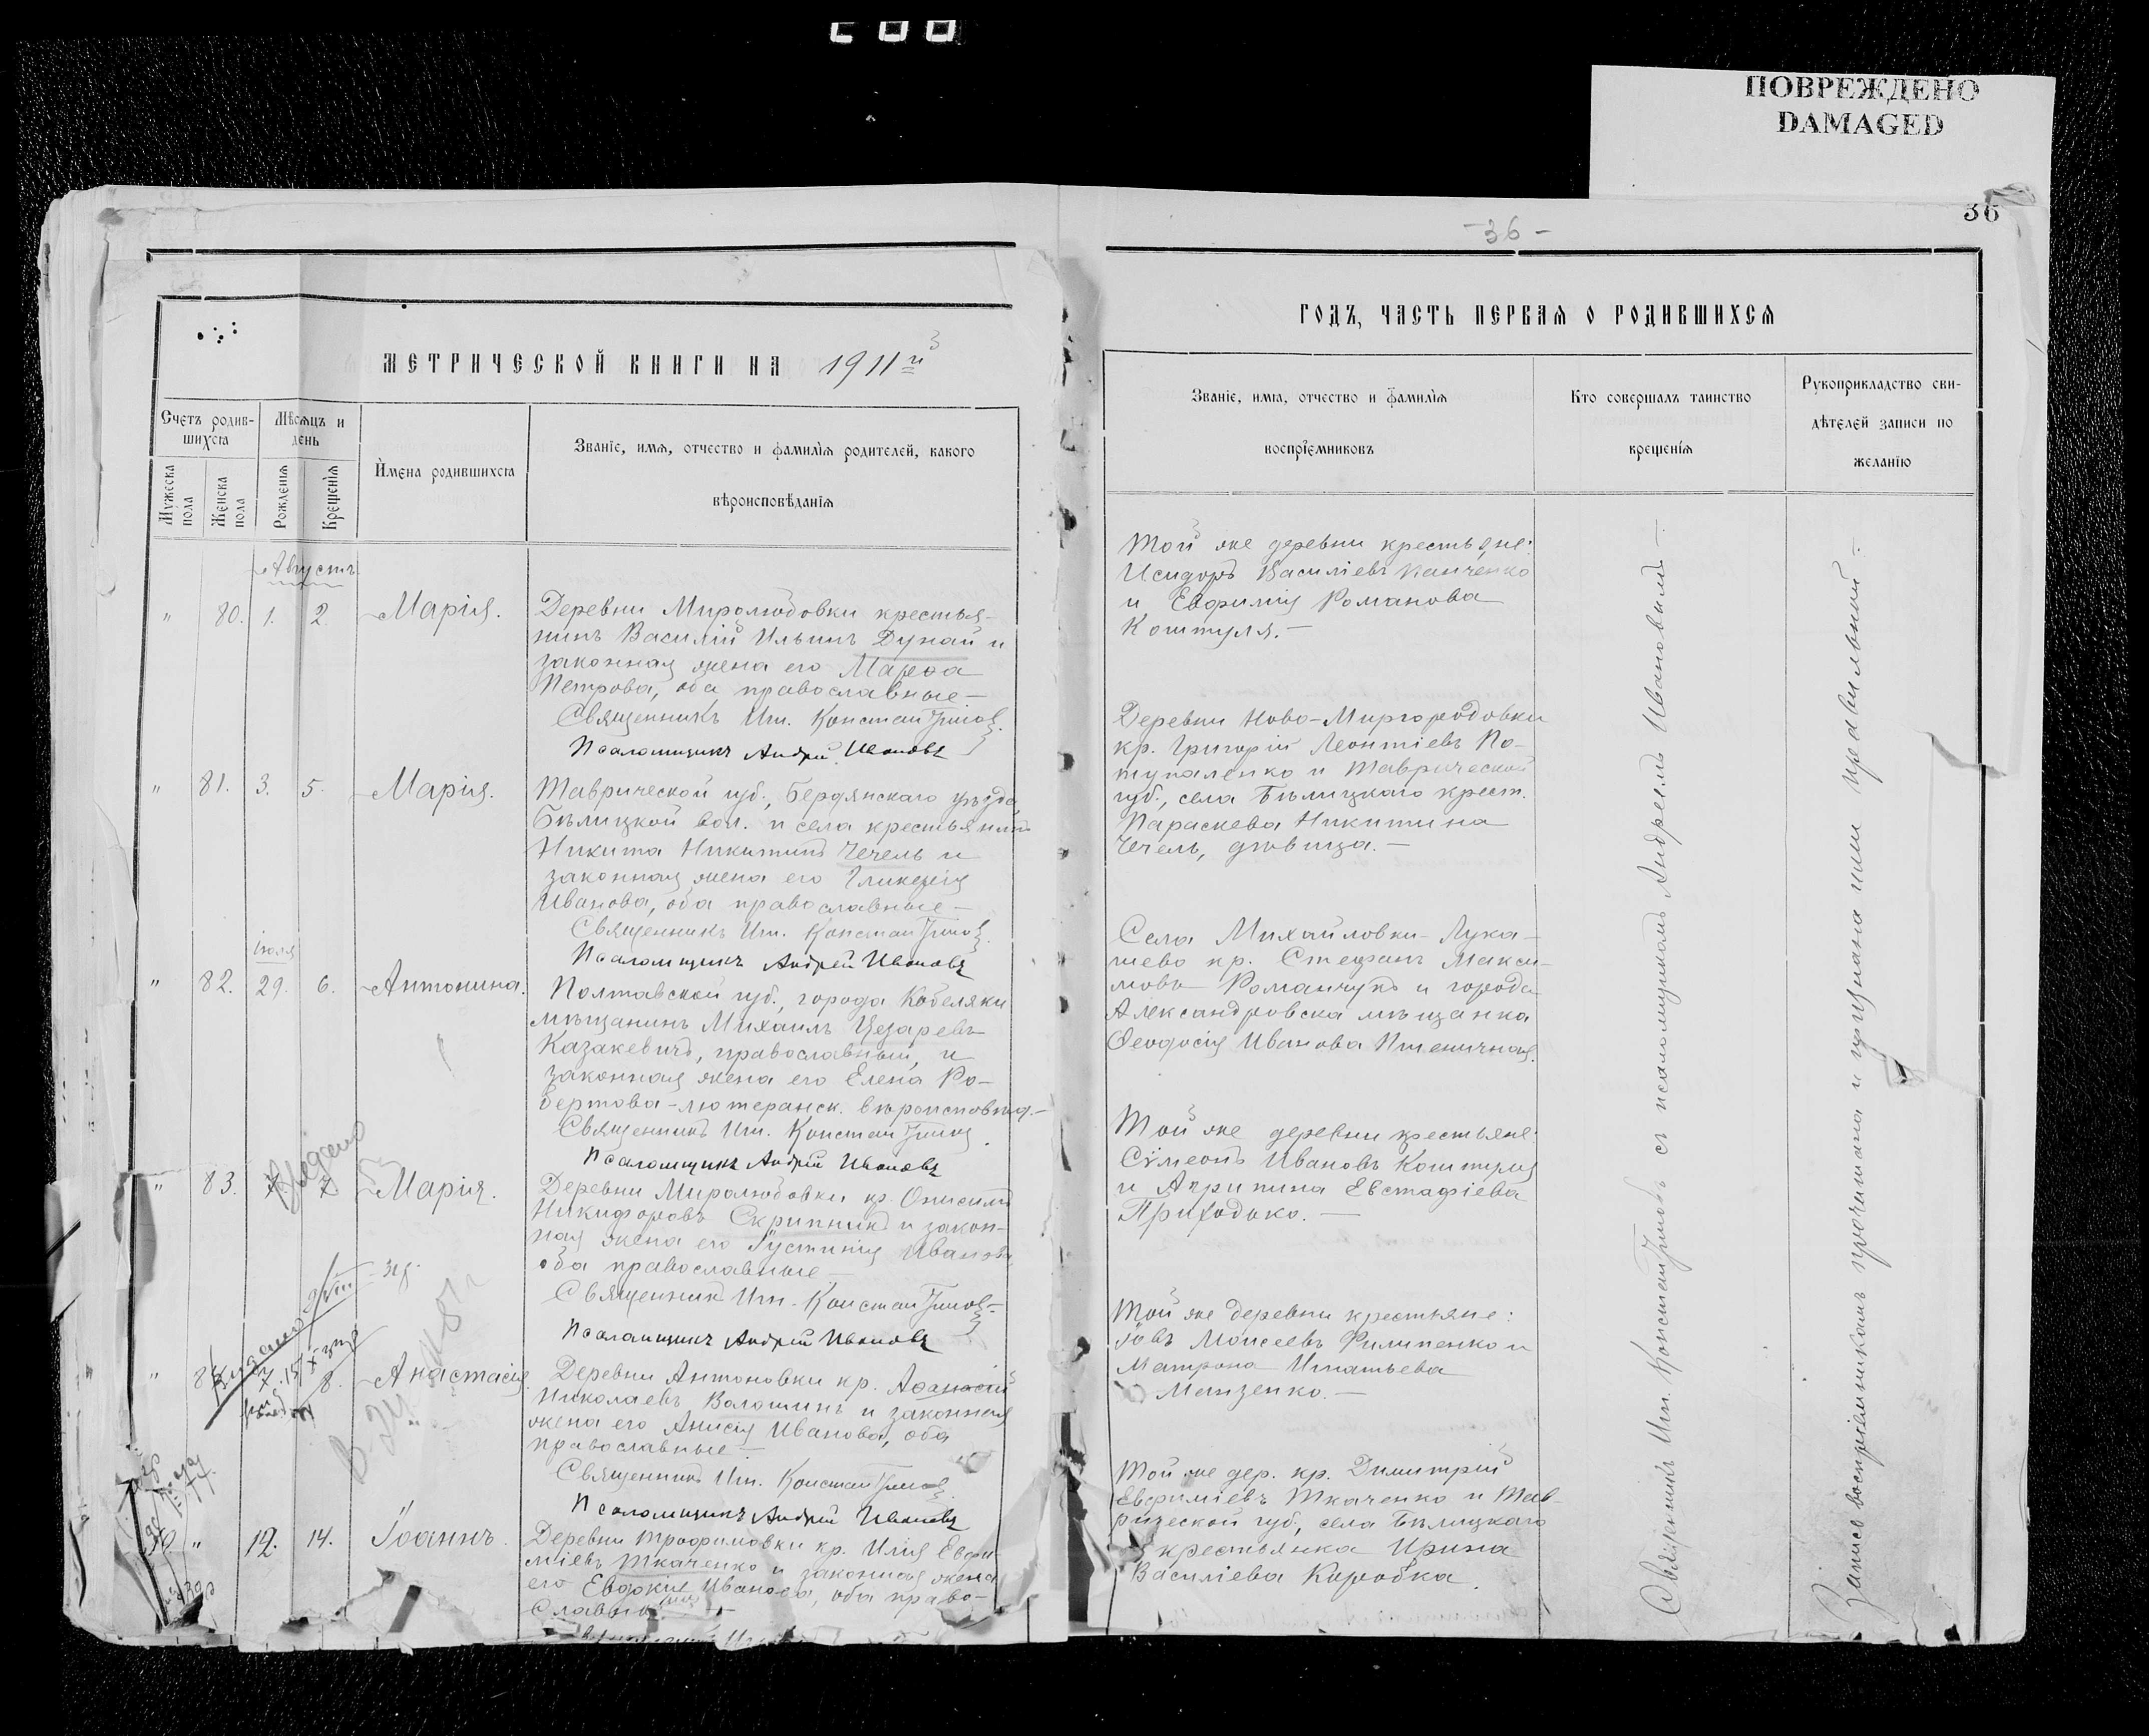 ПОВРЕЖДЕНО
DAMAGED
36
-36-
МЕТРИЧЕСКОЙ КНИГИ НА 1911й
Счетъ родив-
шихся
Мѣсяцъ и
день
Мужеска пола
Женска пола
Рожденія
Крещенія
Имена родившихся
Званіе, имя, отчество и фамилія родителей, какого
вѣроисповѣданія
Августъ
" 80. 1. 2. Марія.
Деревни Миролюбовки крестья-
нинъ Василій Ильинъ Дунай и
законная жена его Марѳа
Петрова, оба православные —
Священникъ Иг. Констан
Псаломщикъ Андрей Ивановъ
" 81. 3. 5. Марія.
Таврической губ., Бердянскаго уѣзда,
Бѣлицкой вол. и села крестьянинъ
Никита Никитинъ Чечель и
законная жена его Гликерія
Иванова, оба православные —
Священникъ Иг. Констан
Псаломщикъ Андрей Ивановъ
іюля
" 82. 29. 6. Антонина.
Полтавской губ., города Кобеляки
мѣщанинъ Михаилъ Цезаревъ
Казакевичъ, православный, и
законная жена его Елена Ро-
бертова - лютеранск. вѣроисповѣд. —
Священникъ Иг. Констан
Псаломщикъ Андрей Ивановъ
" 83. 7. 7 Марія.
Видано
Деревни Миролюбовки кр. Онисимъ
Никифоровъ Скрипникъ и закон-
ная жена его Іустинія Иванова
оба православные —
Священникъ Иг. Констан
Псаломщикъ Андрей Ивановъ
" 7. 8. Анастасія.
Деревни Антоновки кр. Аѳанасій
Николаевъ Волошинъ и законная
жена его Анисія Иванова, оба
православные —
Священникъ Иг. Констан
Псаломщикъ Андрей Ивановъ
" 12. 14. Іоаннъ.
Деревни Трофимовки кр. Илія Евфи
міевъ Ткаченко и законная жена
его Евдокія Иванова, оба право-
славные —
ГОДЪ, ЧАСТЬ ПЕРВАЯ О РОДИВШИХСЯ
Званіе, имя, отчество и фамилія
воспріемниковъ
Кто совершалъ таинство
крещенія
Рукоприкладство сви-
дѣтелей записи по
желанію
Той же деревни крестьяне:
Исидоръ Василіевъ Панченко
и Евфимія Романова
Коштуля. —
Деревни Ново-Миргородовки
кр. Григорій Леонтіевъ По-
тупаленко и Таврической
губ., села Бѣлицкаго крест.
Параскева Никитина
Чечель, дѣвица. —
Села Михайловки-Лука-
шево кр. Стефанъ Макси-
мовъ Романчукъ и города
Александровска мѣщанка
Ѳеодосія Иванова Пшеничная.
Той же деревни крестьяне:
Сѵмеонъ Ивановъ Коштуля
и Агрипина Евстафіева
Приходько. —
Той же деревни крестьяне:
Іовъ Моисеевъ Филипенко и
Матрона Игнатьева
Мацзенко. —
Той же дер. кр. Димитрій
Евфиміевъ Ткаченко и Тав-
рической губ., села Бѣлицкаго
крестьянка Ирина
Василіева Коробка.
Священникъ Иг. Констан съ псаломщикомъ Андреемъ Ивановымъ —
Запись воспріемникамъ прочитана и признана ими правильной. —